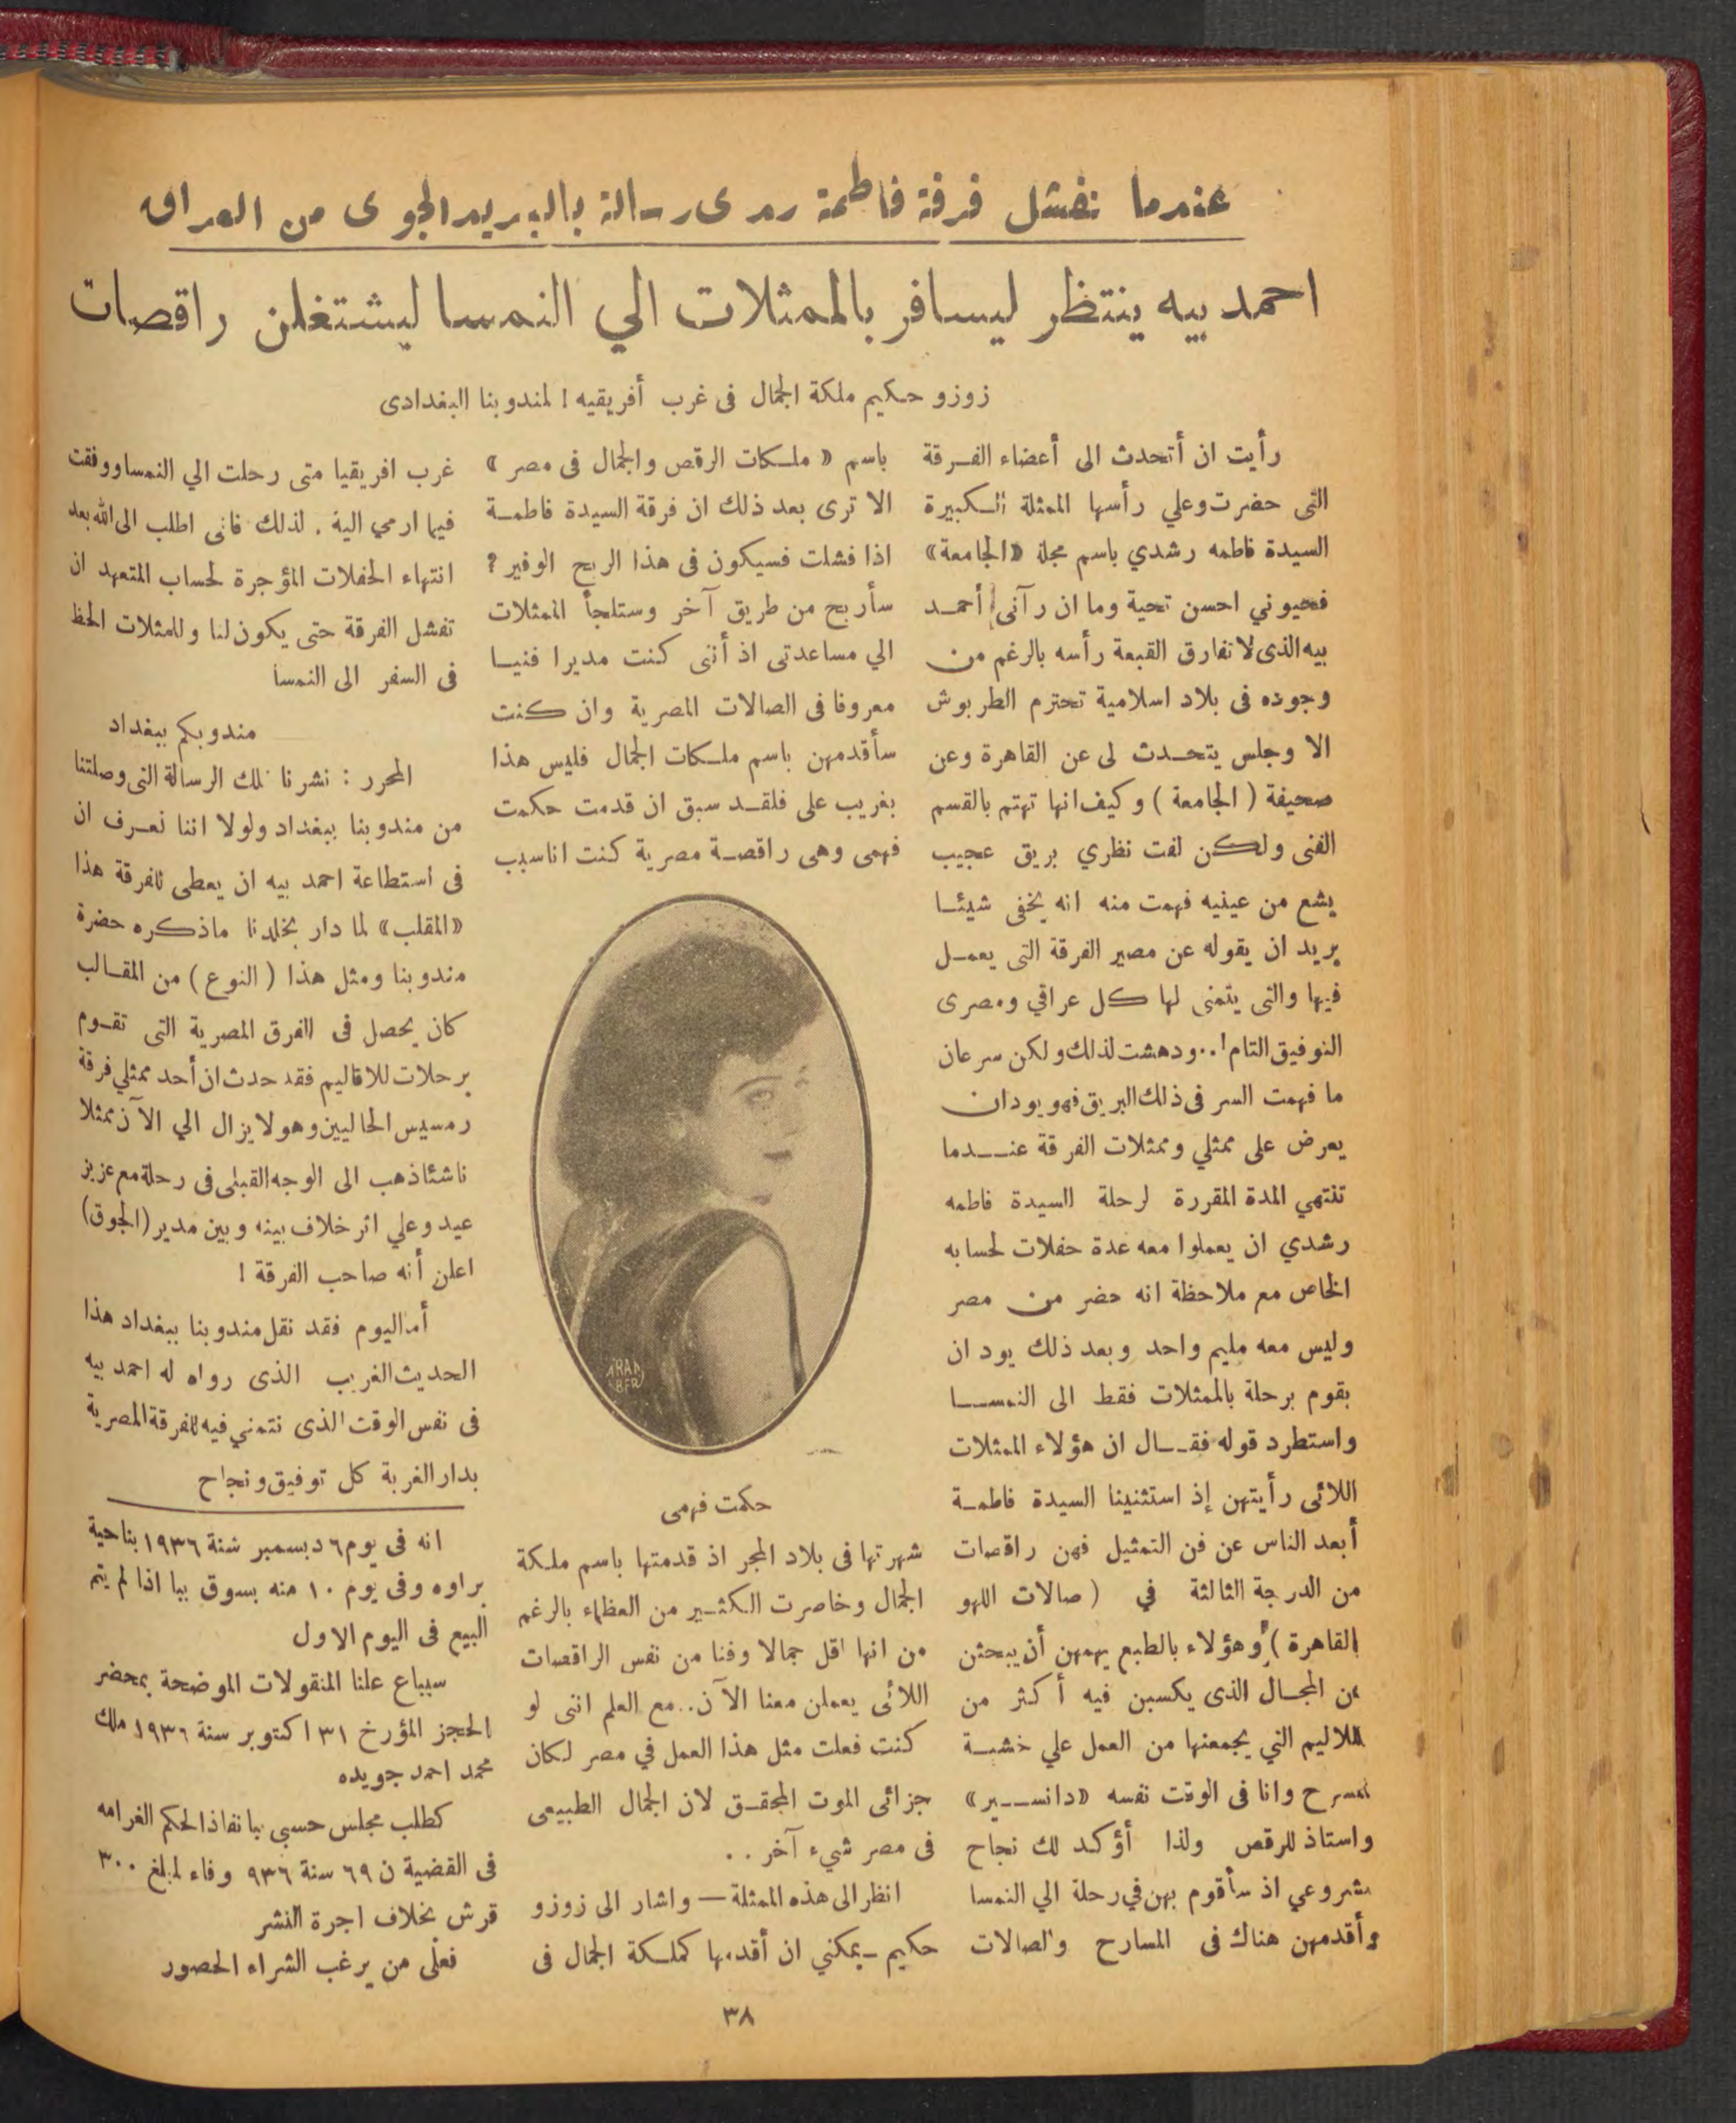 عندما تفشل فرقة فاطمة رشدى رسالة بالبريد الجوى من العراق
احمد بيه ينتظر ليسافر بالممثلات الي النمسا ليشتغلن راقصات
زوزو حكيم ملكة الجمال فى غرب أفريقيه ! لمندوبنا البغدادى
رأيت ان أتحدث الى أعضاء الفرقة
التى حضرت وعلي رأسها الممثلة الكبيرة
السيدة فاطمه رشدي باسم مجلة «الجامعة»
فحيوني احسن تحية وما ان رآنى أحمد
بيه الذى لا تفارق القبعة رأسه بالرغم من
وجوده فى بلاد اسلامية تحترم الطربوش
الا وجلس يتحدث لى عن القاهرة وعن
صحيفة ( الجامعة ) وكيف انها تهتم بالقسم
الفنى ولكن لفت نظري بريق عجيب
يشع من عينيه فهمت منه انه يخفى شيئا
يريد ان يقوله عن مصير الفرقة التى يعمل
فيها والتى يتمنى لها كل عراقي ومصرى
التوفيق التام ! .. ودهشت لذلك ولكن سرعان
ما فهمت السر فى ذلك البريق فهو يود ان
يعرض على ممثلي وممثلات الفرقة عندما
تنتهي المدة المقررة لرحلة السيدة فاطمه
رشدي ان يعملوا معه عدة حفلات لحسابه
الخاص مع ملاحظة انه حضر من مصر
وليس معه مليم واحد وبعد ذلك يود ان
يقوم برحلة بالممثلات فقط الى النمسا
واستطرد قوله فقال ان هؤلاء الممثلات
اللائى رأيتهن إذ استثنينا السيدة فاطمة
أبعد الناس عن فن التمثيل فهن راقصات
من الدرجة الثالثة في ( صالات اللهو
القاهرة ) وهؤلاء بالطبع يهمهن أن يبحثن
عن المجال الذى يكسبن فيه أكثر من
الملاليم التي يجمعنها من العمل علي خشبة
المسرح وانا فى الوقت نفسه «دانسير»
واستاذ للرقص ولذا أؤكد لك نجاح
مشروعي اذ سأقوم بهن في رحلة الي النمسا
وأقدمهن هناك فى المسارح والصالات
باسم « ملكات الرقص والجمال فى مصر »
الا ترى بعد ذلك ان فرقة السيدة فاطمة
اذا فشلت فسيكون فى هذا الربح الوفير ؟
سأربح من طريق آخر وستلجأ الممثلات
الي مساعدتى اذ أننى كنت مديرا فنيا
معروفا فى الصالات المصرية وان كنت
سأقدمهن باسم ملكات الجمال فليس هذا
بغريب على فلقد سبق ان قدمت حكمت
فهمى وهى راقصة مصرية كنت انا سبب
حكمت فهمى
شهرتها فى بلاد المجر اذ قدمتها باسم ملكة
الجمال وخاصرت الكثير من العظماء بالرغم
من انها اقل جمالا وفنا من نفس الراقصات
اللائى يعملن معنا الآن .. مع العلم اننى لو
كنت فعلت مثل هذا العمل في مصر لكان
جزائى الموت المحقق لان الجمال الطبيعى
فى مصر شيء آخر ..
انظر الى هذه الممثلة — واشار الى زوزو
حكيم - يمكنني ان أقدمها كملكة الجمال فى
غرب افريقيا متى رحلت الي النمسا ووفقت
فيما ارمي اليه . لذلك فانى اطلب الى الله بعد
انتهاء الحفلات المؤجرة لحساب المتعهد ان
تفشل الفرقة حتى يكون لنا وللمثلات الحظ
فى السفر الى النمسا
مندوبكم ببغداد
المحرر : نشرنا تلك الرسالة التى وصلتنا
من مندوبنا ببغداد ولولا اننا نعرف ان
فى استطاعة احمد بيه ان يعطى للفرقة هذا
«المقلب» لما دار بخلدنا ماذكره حضرة
مندوبنا ومثل هذا ( النوع ) من المقالب
كان يحصل فى الفرق المصرية التى تقوم
برحلات للاقاليم فقد حدث ان أحد ممثلي فرقة
رمسيس الحاليين وهو لا يزال الي الآن ممثلا
ناشئا ذهب الى الوجه القبلى فى رحلة مع عزيز
عيد وعلي اثر خلاف بينه وبين مدير (الجوق)
اعلن أنه صاحب الفرقة !
أما اليوم فقد نقل مندوبنا ببغداد هذا
الحديث الغريب الذى رواه له احمد بيه
فى نفس الوقت الذى نتمني فيه للفرقة المصرية
بدار الغربة كل توفيق ونجاح
انه فى يوم ٦ دبسمبر سنة ١٩٣٦ بناحية
براوه وفى يوم ١٠ منه بسوق ببا اذا لم يتم
البيع فى اليوم الاول
سيباع علنا المنقولات الموضحة بمحضر
الحجز المؤرخ ٣١ اكتوبر سنة ١٩٣٦ ملك
محمد احمد جويده
كطلب مجلس حسبي ببا نفاذا لحكم الغرامه
فى القضية ن ٦٩ سنة ٩٣٦ وفاء لمبلغ ٣٠٠
قرش بخلاف اجرة النشر
فعلى من يرغب الشراء الحضور
٣٨